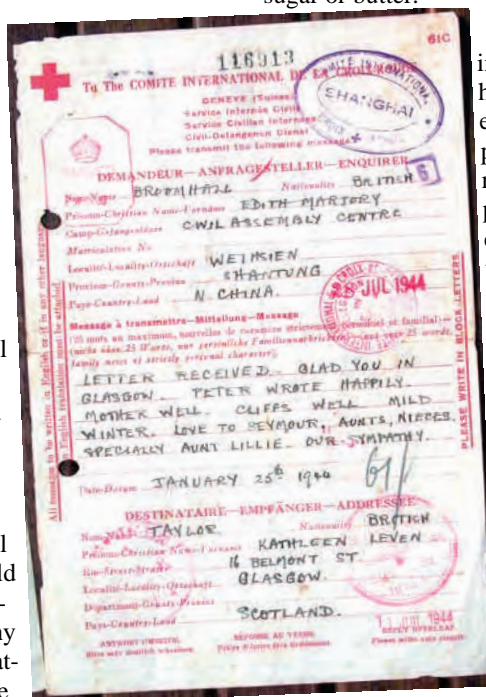 sugar or butter.
61C
116913
To The COMITE INTERNATIONAL DE LA CROIX ROUGE
GENEVE (Suisse)
Service Internés Civils
Service Civilian Internees
Civil-Gefangenen Dienst
Please transmit the following message
COMITÉ INTERNATIONAL
SHANGHAI
DEMANDEUR—ANFRAGESTELLER—ENQUIRER
6
BROOMHALL Nationality BRITISH
Prénom-Christian Name-Vorname EDITH MARJORY
CIVIL ASSEMBLY CENTRE
Matriculation No
Localité-Locality-Ortschaft WEIHSIEN
Province-County-Provinz SHANTUNG
Pays-Country-Land N. CHINA.
JUL 1944
Message à transmettre—Mitteilung—Message
(nicht über 25 Worte, nur persönliche Familiennachrichten)
family news of strictly personal character)
LETTER RECEIVED. GLAD YOU IN
GLASGOW. PETER WROTE HAPPILY.
MOTHER WELL. CLIFFS WELL. MILD
WINTER. LOVE TO SEYMOUR, AUNTS, NIECES.
SPECIALLY AUNT LILLIE. OUR SYMPATHY.
Date-Datum JANUARY 25th 1944
61
DESTINATAIRE—EMPFÄNGER—ADDRESSEE
TAYLOR Nationality BRITISH
Prénom-Christian Name-Vorname KATHLEEN LEVEN
Rue-Street-Strasse 16 BELMONT ST.
Localité-Locality-Ortschaft GLASGOW.
Department-County-Provinz
Pays-Country-Land SCOTLAND.
JUL 1944
ANTWORT UMSEITIG. RÉPONSE AU VERSO. REPLY OVERLEAF.
Bitte sehr deutlich schreiben. Prière d'écrire très lisiblement. Please write very clearly.
PLEASE WRITE IN BLOCK LETTERS
All messages to be written in English or if in any other language
an English translation must be attached.